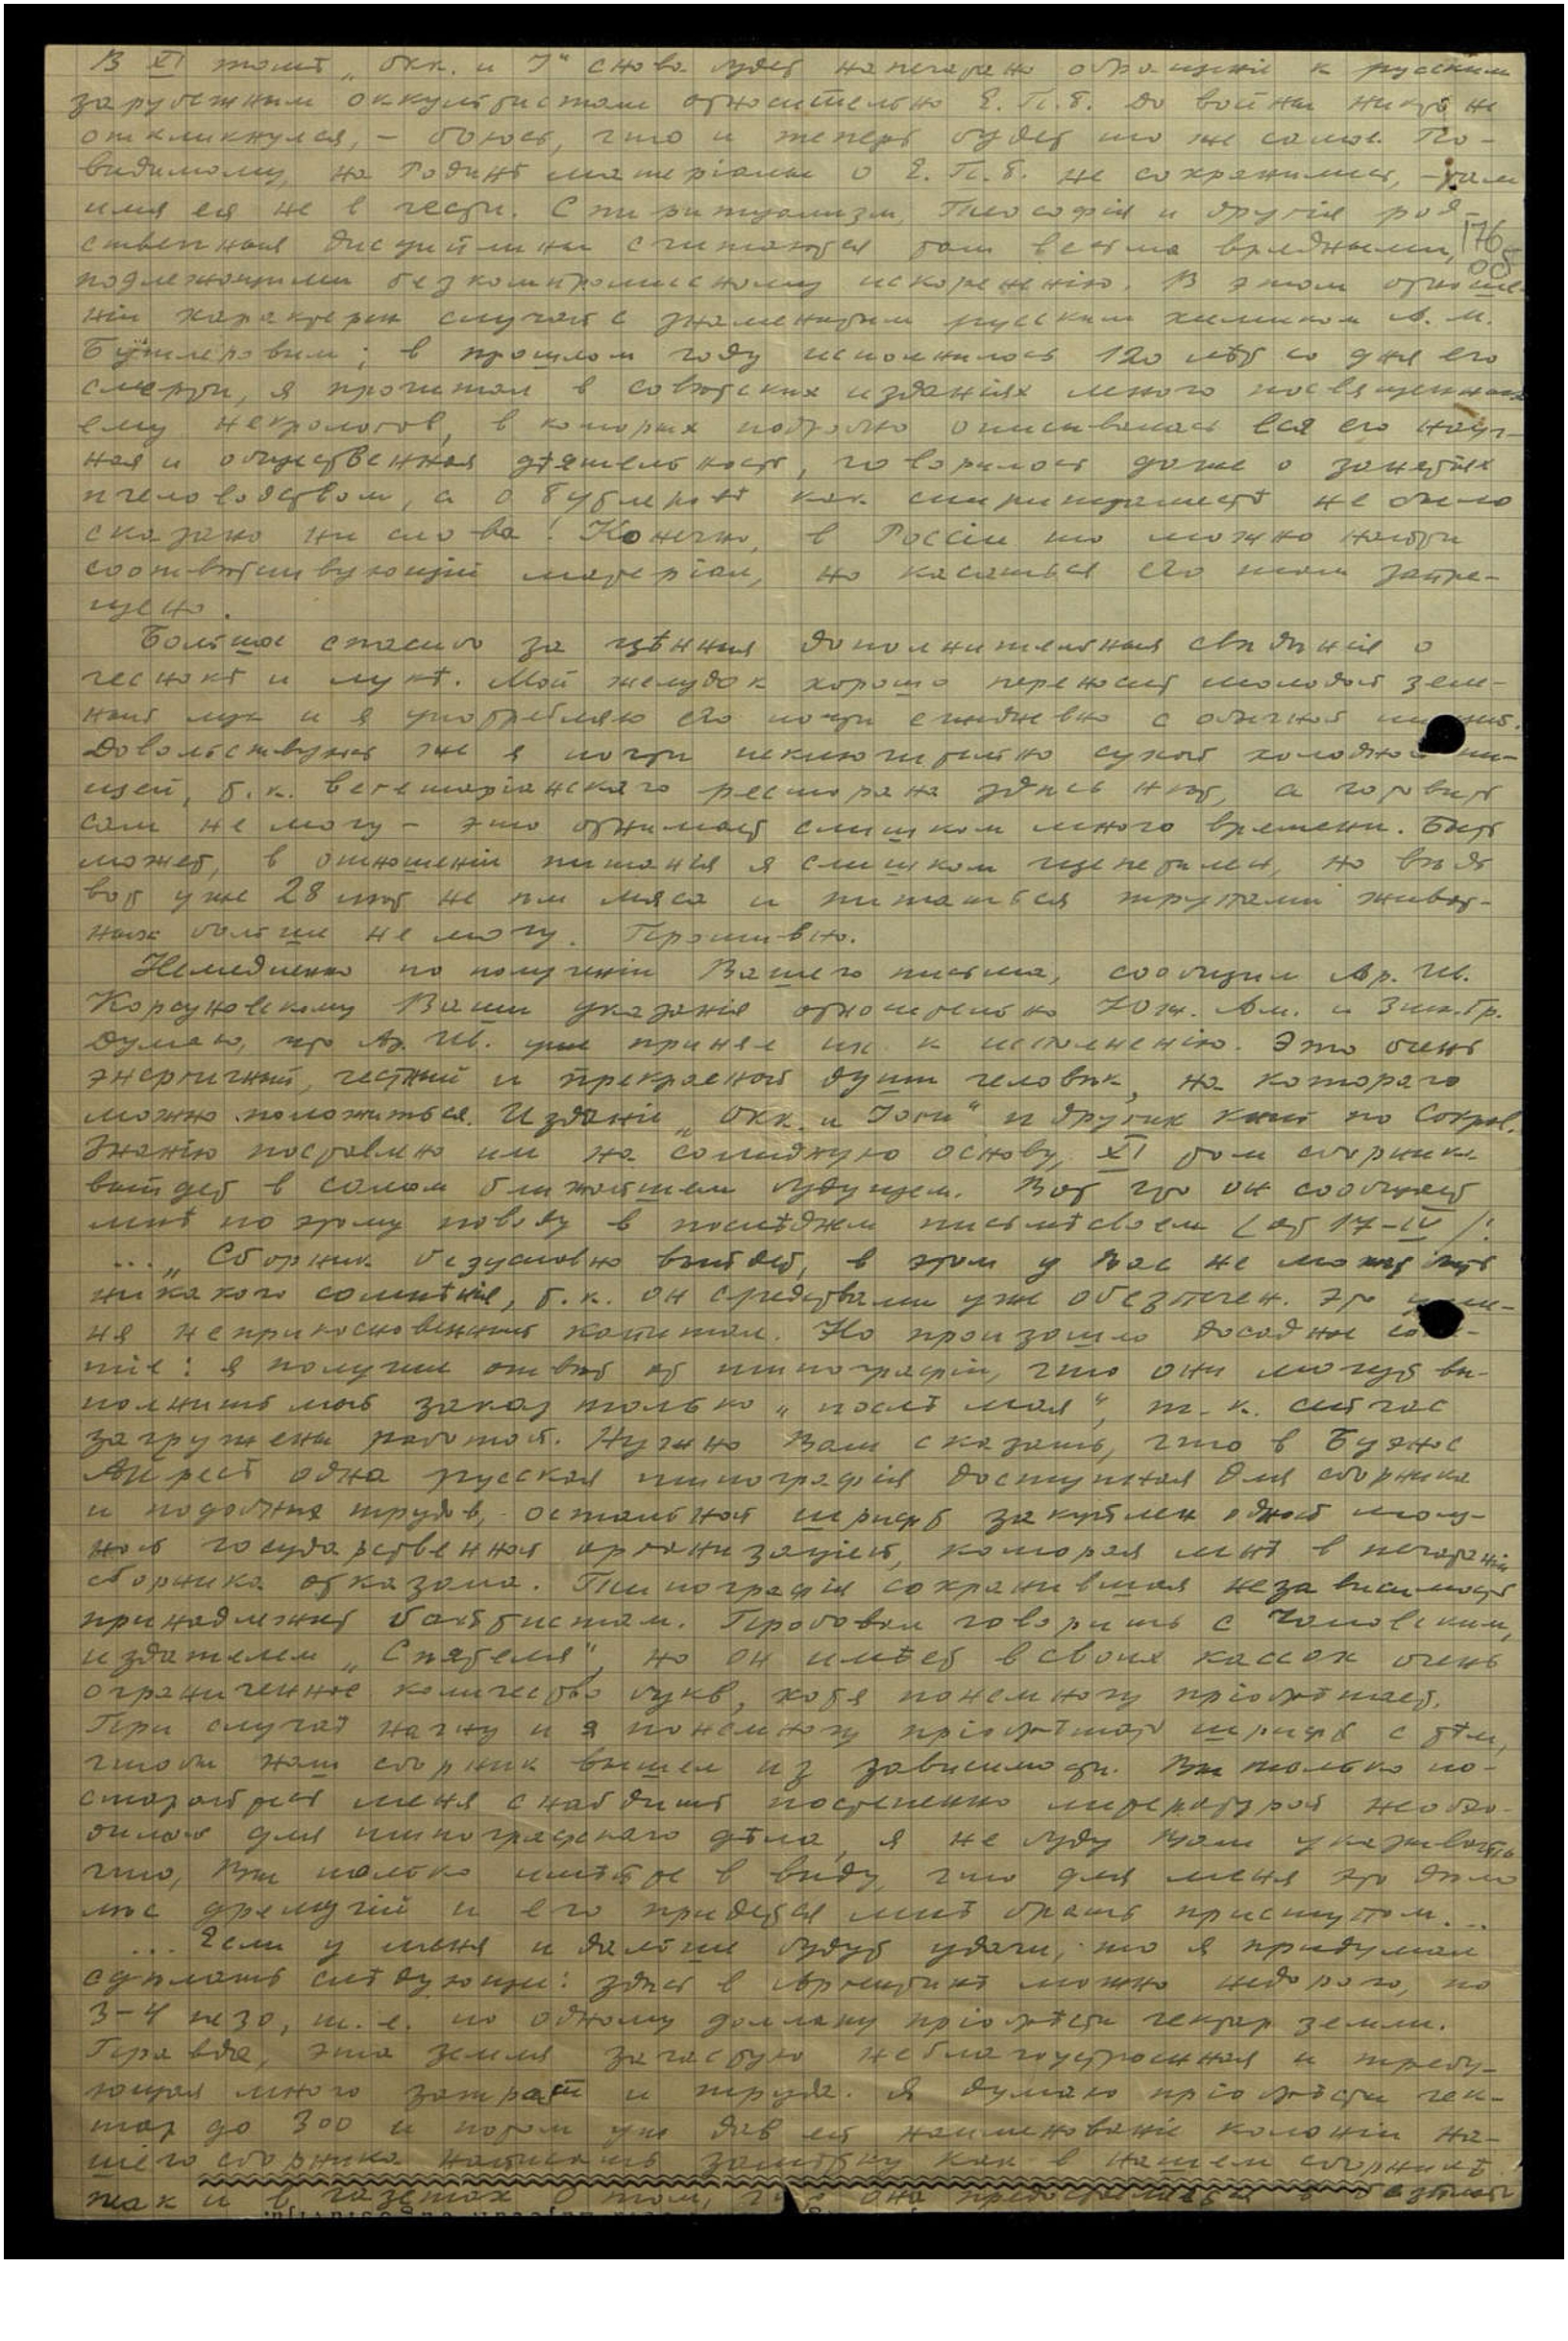 В XI томѣ „Окк. и I“ снова будет напечатано обращенiе к русским
зарубежным оккультистам относительно Е. П. Б. До войны никто не
откликнулся, – боюсь, что и теперь будет то же самое. По-
видимому, на Родинѣ матерiалы о Е. П. Б. не сохранились, – там
имя ея не в чести. Спиритуализм, Теософiя и другiя род-
ственныя дисциплины считаются там весьма вредными, 176
подлежащими безкомпромиссному искорененiю. В этом отноше-
нiи характерен случай с знаменитым русским химиком А. М.
Бутлеровым; в прошлом году исполнилось 120 лѣт со дня его
смерти, я прочитал в совѣтских изданiях много посвященных
ему некрологов, в которых подробно описывалась вся его науч-
ная и общественная дѣятельность, говорилось даже о занятiях
пчеловодством, а о Бутлеровѣ как спиритуалистѣ не было
сказано ни слова! Конечно, в Россiи то можно найти
соотвѣтствующiй матерiал, но касаться его там запре-
щено.
Большое спасибо за цѣнныя дополнительныя свѣдѣнiя о
чеснокѣ и лукѣ. Мой желудок хорошо переносит молодой зеле-
ный лук и я употребляю его почти ежедневно с обычной пищей.
Довольствуюсь же я почти исключительно сухой холодной пи-
щей, т. к. вегетарiанскаго ресторана здѣсь нѣт, а готовить
сам не могу – это отнимает слишком много времени. Быть
может, в отношенiи питанiя я слишком щепетилен, но вѣдь
вот уже 28 лѣт не ѣм мяса и питаться трупами живот-
ных больше не могу. Противно.
Немедленно по полученiи Вашего письма, сообщил Ар. Ив.
Корсуновскому Ваши указанiя относительно Юж. Ам. и Зин. Гр.
Думаю, что Ар. Ив. уже принял их к исполненiю. Это очень
энергичный, честный и прекрасной души человѣк, на котораго
можно положиться. Изданiе „Окк. и Iоги“ и других книг по Сокров.
Знанiю поставлено им на солидную основу, XI том сборника
выйдет в самом ближайшем будущем. Вот что он сообщает
мнѣ по этому поводу в послѣднем письмѣ своем (от 17–IV):
... „Сборник безусловно выйдет, в этом у Вас не может быть
никакого сомнѣнiя, т. к. он средствами уже обезпечен. Это у ме-
ня неприкосновенный капитал. Но произошло досадное собы-
тiе: я получил отвѣт от типографiи, что они могут вы-
полнить мой заказ только „послѣ мая“, т. к. сейчас
загружены работой. Нужно Вам сказать, что в Буэнос
Айресѣ одна русская типографiя доступная для сборника
и подобных трудов, остальной шрифт закуплен одной мощ-
ной государственной организацiей, которая мнѣ в печатанiи
сборника отказала. Типографiя сохранившая независимость
принадлежит баптистам. Пробовал говорить с Чоловским,
издателем „Сѣятеля“, но он имѣет в своих кассах очень
ограниченное количество букв, хотя понемногу прiобрѣтает.
При случаѣ начну и я понемногу прiобрѣтать шрифт с тѣм,
чтобы наш сборник вышел из зависимости. Вы только по-
старайтесь меня снабдить постепенно литературой необхо-
димой для типографскаго дѣла, я не буду Вам указывать
что, Вы только имѣйте в виду, что для меня это дѣло
лѣс дремучiй и его придется мнѣ брать приступом...
... Если у меня и дальше будут удачи, то я придумал
сдѣлать слѣдующее: здѣсь в Аргентинѣ можно недорого, по
3–4 пезо, т. е. по одному доллару прiобрѣсти гектар земли.
Правда, эта земля зачастую неблагоустроенная и требу-
ющая много затрат и труда. Я думаю прiобрѣсти гек-
тар до 300 и потом уже дав ей наименованiе колонiи на-
шего сборника написать замѣтку как в нашем сборникѣ
так и в газетах о том, что она предоставляется